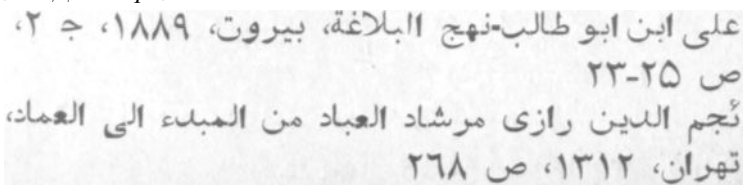 علی ابن ابو طالب-نهج البلاغة، بیروت، ۱۸۸۹، ج ۲،
ص ۲۵-۲۳
نجم الدین رازی مرشاد العباد من المبدء الی العماد،
تهران، ۱۳۱۲، ص ۲۶۸